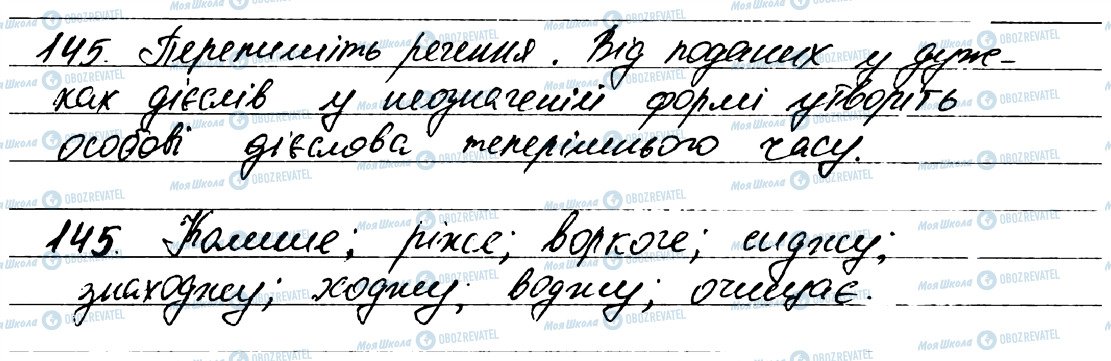 145. Перепишіть речення. Від поданих у душ-
ках дієслів у неозначеній формі утворіть
особові дієслова теперішнього часу.
145. Колише; ріже; воркоче; сиджу;
знаходжу; ходжу; воджу; очищає.